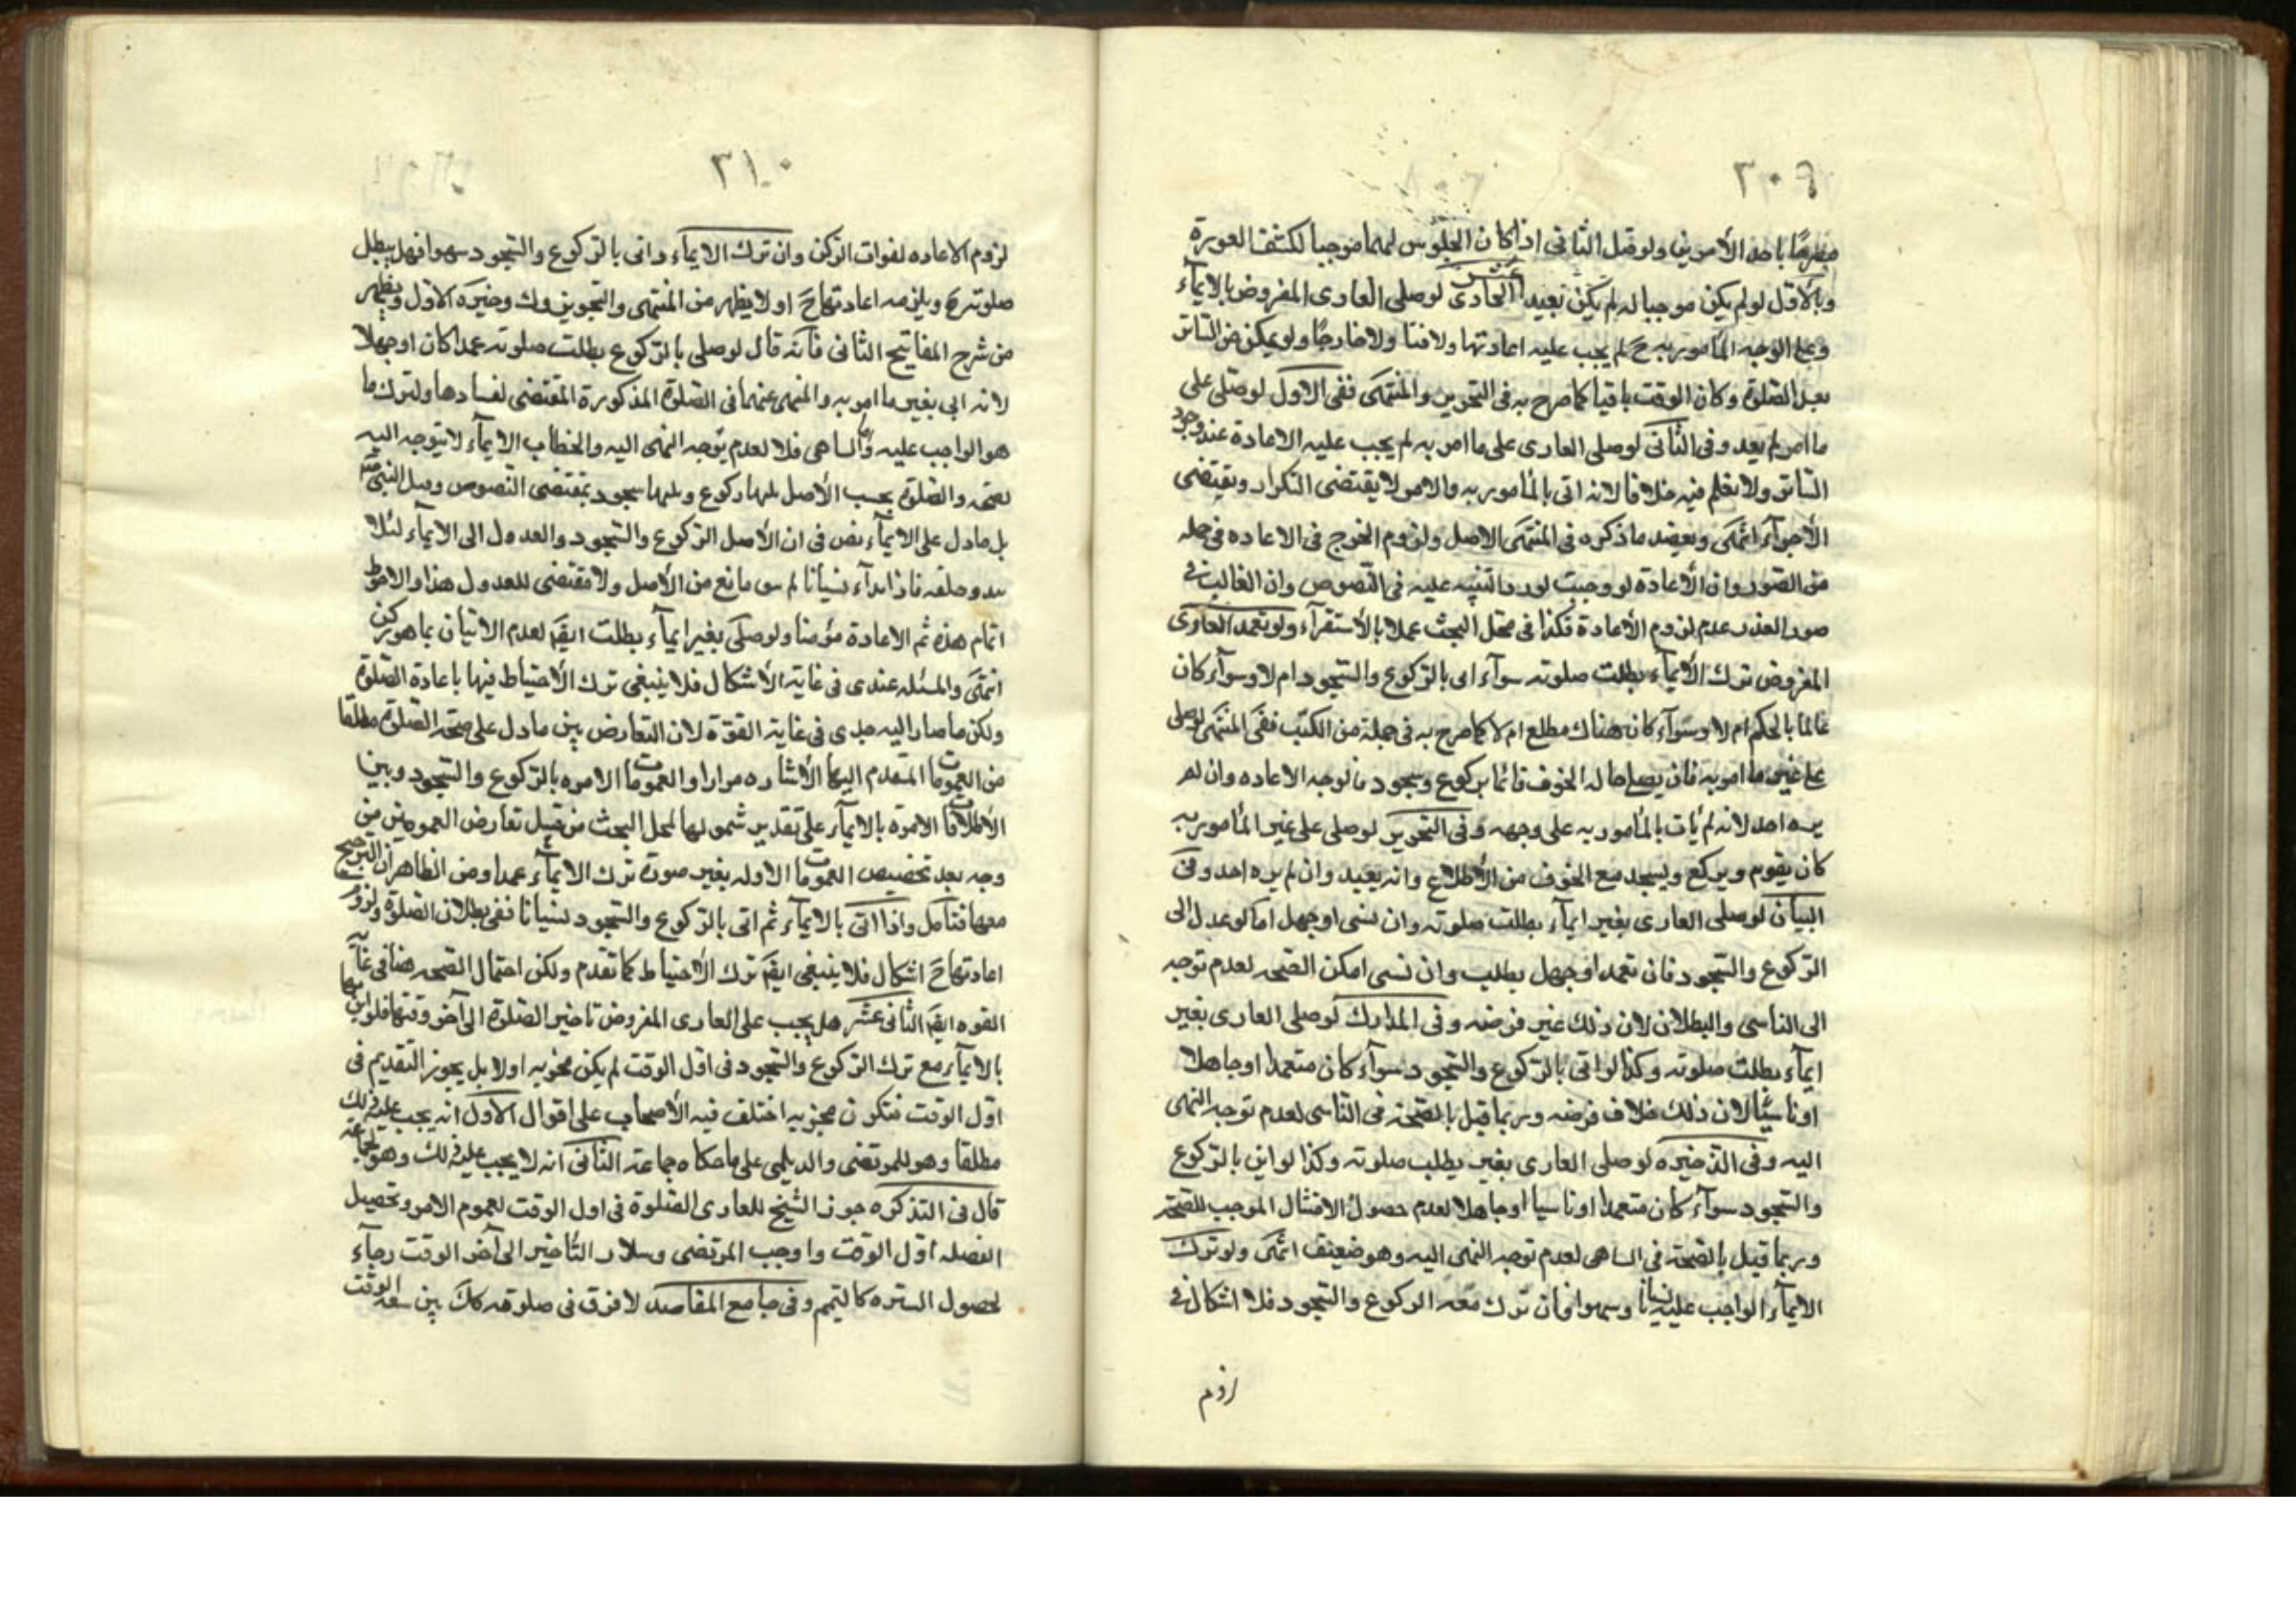 ٣٠٩
باحد الأمرين ولو قيل الثاني اذا كان الجلوس لهما موجبا لكشف العورة
وبالأول لو لم يكن موجبا له لم يكن بعيدا الحادى عشر لو صلى العارى المفروض بالايماء
وعلى الوجه المأمور به ح لم يجب عليه اعادتها ولا فنا ولا خارجا ولو تمكن من الساتر
بعد الصلوة وكان الوقت باقيا كما صرح به فى التحرير والمنتهى ففى الاول لو صلى على
ما امر لم يعد وفى الثانى لو صلى العارى على ما امر به لم يجب عليه الاعادة عند وجود
الساتر ولا نعلم فيه خلافا لانه اتى بالمأمور به والامر لا يقتضى التكرار ويقتضى
الأجزآء انتهى ويعضد ما ذكره فى المنتهى الاصل ولزوم الحرج فى الاعاده فى جمله
من الصور وان الأعادة لو وجبت لورد التنبيه عليه فى النصوص وان الغالب فى
صور العذر عدم لزوم الأعادة فكذا فى محل البحث عملا بالأستقرآء ولو تعمد العارى
المفروض ترك الأيماء بطلت صلوته سوآء اتى بالركوع والسجود ام لا وسوآء كان
عالما بالحكم ام لا وسوآء كان هناك مطلع ام لا كما صرح به فى جملة من الكتب ففى المنتهى لو صلى
على غير ما امر به فان يصلى حاله الخوف قائما بركوع وسجود فالوجه الاعاده وان لم
يره احد لانه لم يأت بالمأمور به على وجهه وفى التحرير لو صلى على غير المأمور به
كان يقوم ويركع ويسجد مع الخوف من الأطلاع وانه يعيد وان لم يره احد وفى
البيان لو صلى العارى بغير ايمآء بطلت صلوته وان نسى او جهل اما لو عدل الى
الركوع والسجود فان تعمد او جهل بطلب وان نسى امكن الصحه لعدم توجه
الى الناسى والبطلان لان ذلك غير فرضه وفى المدارك لو صلى العارى بغير
ايمآء بطلت صلوته وكذا لو اتى بالركوع والسجود سوآء كان متعمدا او جاهلا
او ناسيا لان ذلك خلاف فرضه وربما قيل بالصحة فى الناسى لعدم توجه النهى
اليه وفى الذخيره لو صلى العارى بغير يطلب صلوته وكذا لو اتى بالركوع
والسجود سوآء كان متعمدا او ناسيا او جاهلا لعدم حصول الامتثال الموجب للصحة
وربما قيل بالصحة فى الساهى لعدم توجه النهى اليه وهو ضعيف انتهى ولو ترك
الايمآء الواجب عليه نسيانا وسهوا فان ترك معه الركوع والسجود فلا اشكال فى
لزوم
٣١٠
لزوم الاعاده لفوات الركن وان ترك الايمآء واتى بالركوع والسجود سهوا فهل يبطل
صلوته ح ويلزمه اعادتها ح او لا يظهر من المنتهى والتحرير وك وخيره الاول ويظهر
من شرح المفاتيح الثانى فانه قال لو صلى بالركوع بطلت صلوته عمدا كان او جهلا
لانه اتى بغير ما امر به والمنهى عنهما فى الصلوة المذكورة المقتضى لفسادها ولترك ما
هو الواجب عليه واما الساهى فلا لعدم توجه النهى اليه والخطاب الايمآء لا يتوجه اليه
لصحه والصلوة بحسب الأصل لها ركوع ولها سجود بمقتضى النصوص وفعل النبى
بل ما دل على الايمآء نص فى ان الأصل الركوع والسجود والعدول الى الايمآء لئلا
يبدو خلفه فاذا بدآء نسيانا لم يبق مانع من الأصل ولا مقتضى للعدول هذا والاحوط
اتمام هذه ثم الاعادة ولو صلى بغير ايمآء بطلت ايض لعدم الاتيان بما هو ركن
انتهى والمسئله عندى فى غاية الأشكال فلا ينبغى ترك الأحتياط فيها باعادة الصلوة
ولكن ما صار اليه جدى فى غاية القوة لان التعارض بين ما دل على صحة الصلوة مطلقا
من العمومات المتقدم اليها الأشاره مرارا والعمومات الامره بالركوع والسجود وبين
الأطلاقات الامرة بالايمآء على تقدير شمولها لمحل البحث من قبيل تعارض العمومين من
وجه بعد تخصيص العمومات الاوله بغير صورة ترك الايمآء عمدا ومن الظاهر ان الترجيح
معها فتأمل واذا اتى بالايمآء ثم اتى بالركوع والسجود نسيانا ففى بطلان الصلوة ولزوم
اعادتها ح اشكال فلا ينبغى ايض ترك الأحتياط كما تقدم ولكن احتمال الصحه هنا فى غاية
القوه ايض الثانى عشر هل يجب على العارى المفروض تاخير الصلوة الى آخر وقتها فلو اتى بها
بالايمآء مع ترك الركوع والسجود فى اول الوقت لم يكن مجزيه او لا بل يجوز التقديم فى
اول الوقت فتكون مجزيه اختلف فيه الأصحاب على اقوال الأول انه يجب عليه ذلك
مطلقا وهو للمرتضى والديلمى على ما حكاه جماعة الثانى انه لا يجب عليه ذلك وهو لجماعة
قال فى التذكره جوز الشيخ للعارى الصلوة فى اول الوقت لعموم الامر وتحصيل
الفضله اول الوقت واوجب المرتضى وسلار التأخير الى آخر الوقت رجآء
لحصول الستره كالتيمم وفى جامع المقاصد لا فرق فى صلوته كك بين سعه الوقت